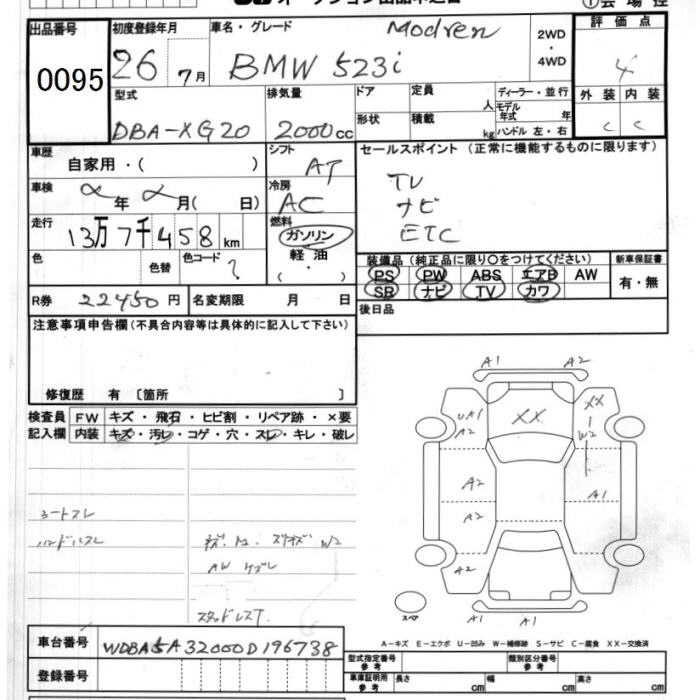 ①会場控
出品番号 初度登録年月 車名・グレード Modren 2WD ・ 4WD 評価点
0095 26 7月 BMW 523i 4
型式 排気量 ドア 定員 人 ディーラー・並行 外装 内装
DBA-XG20 2000cc 形状 積載 kg モデル年式 年 ハンドル 左・右 C C
車歴 自家用・( ) シフト AT セールスポイント (正常に機能するものに限ります)
車検 年 月( 日) 冷房 AC TV
ナビ
走行 13万7千458km 燃料 ガソリン ETC
色 色替 色コード ? 軽油 ( ・ ) 装備品(純正品に限り○をつけてください) 新車保証書
PS PW ABS エアB AW 有・無
SR ナビ TV カワ
R券 22450円 名変期限 月 日 後日品
注意事項申告欄(不具合内容等は具体的に記入して下さい)
修復歴 有 〔箇所 〕
検査員 FW キズ・飛石・ヒビ割・リペア跡・×要
記入欄 内装 キズ・汚レ・コゲ・穴・スレ・キレ・破レ
A1 A2
UA1 A2 XX XX W2
A2 A1
A2
A2
A1 A1
ハンドルスレ W2
AW
スタッドレスT.
スペア
A-キズ E-エクボ U-凹み W-補修跡 S-サビ C-腐食 XX-交換済
車台番号 WDBA5A32000D196738
登録番号
型式指定番号 参考 類別区分番号 参考
車庫証明用 参考 長さ cm 幅 cm 高さ cm